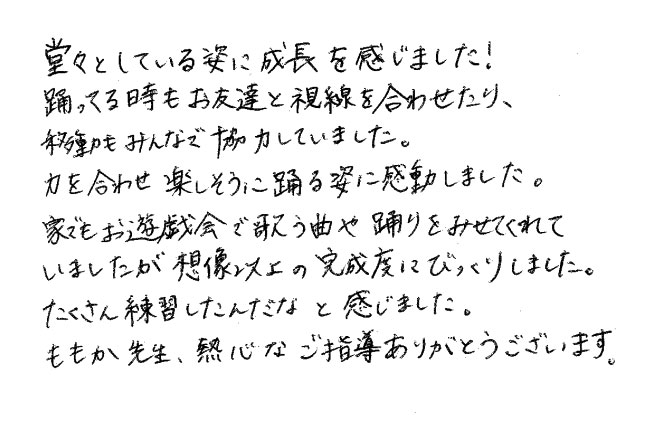 堂々としている姿に成長を感じました!
踊ってる時もお友達と視線を合わせたり、
移動もみんなで協力していました。
力を合わせ楽しそうに踊る姿に感動しました。
家でもお遊戯会で歌う曲や踊りをみせてくれて
いましたが想像以上の完成度にびっくりしました。
たくさん練習したんだなと感じました。
ももか先生、熱心なご指導ありがとうございます。